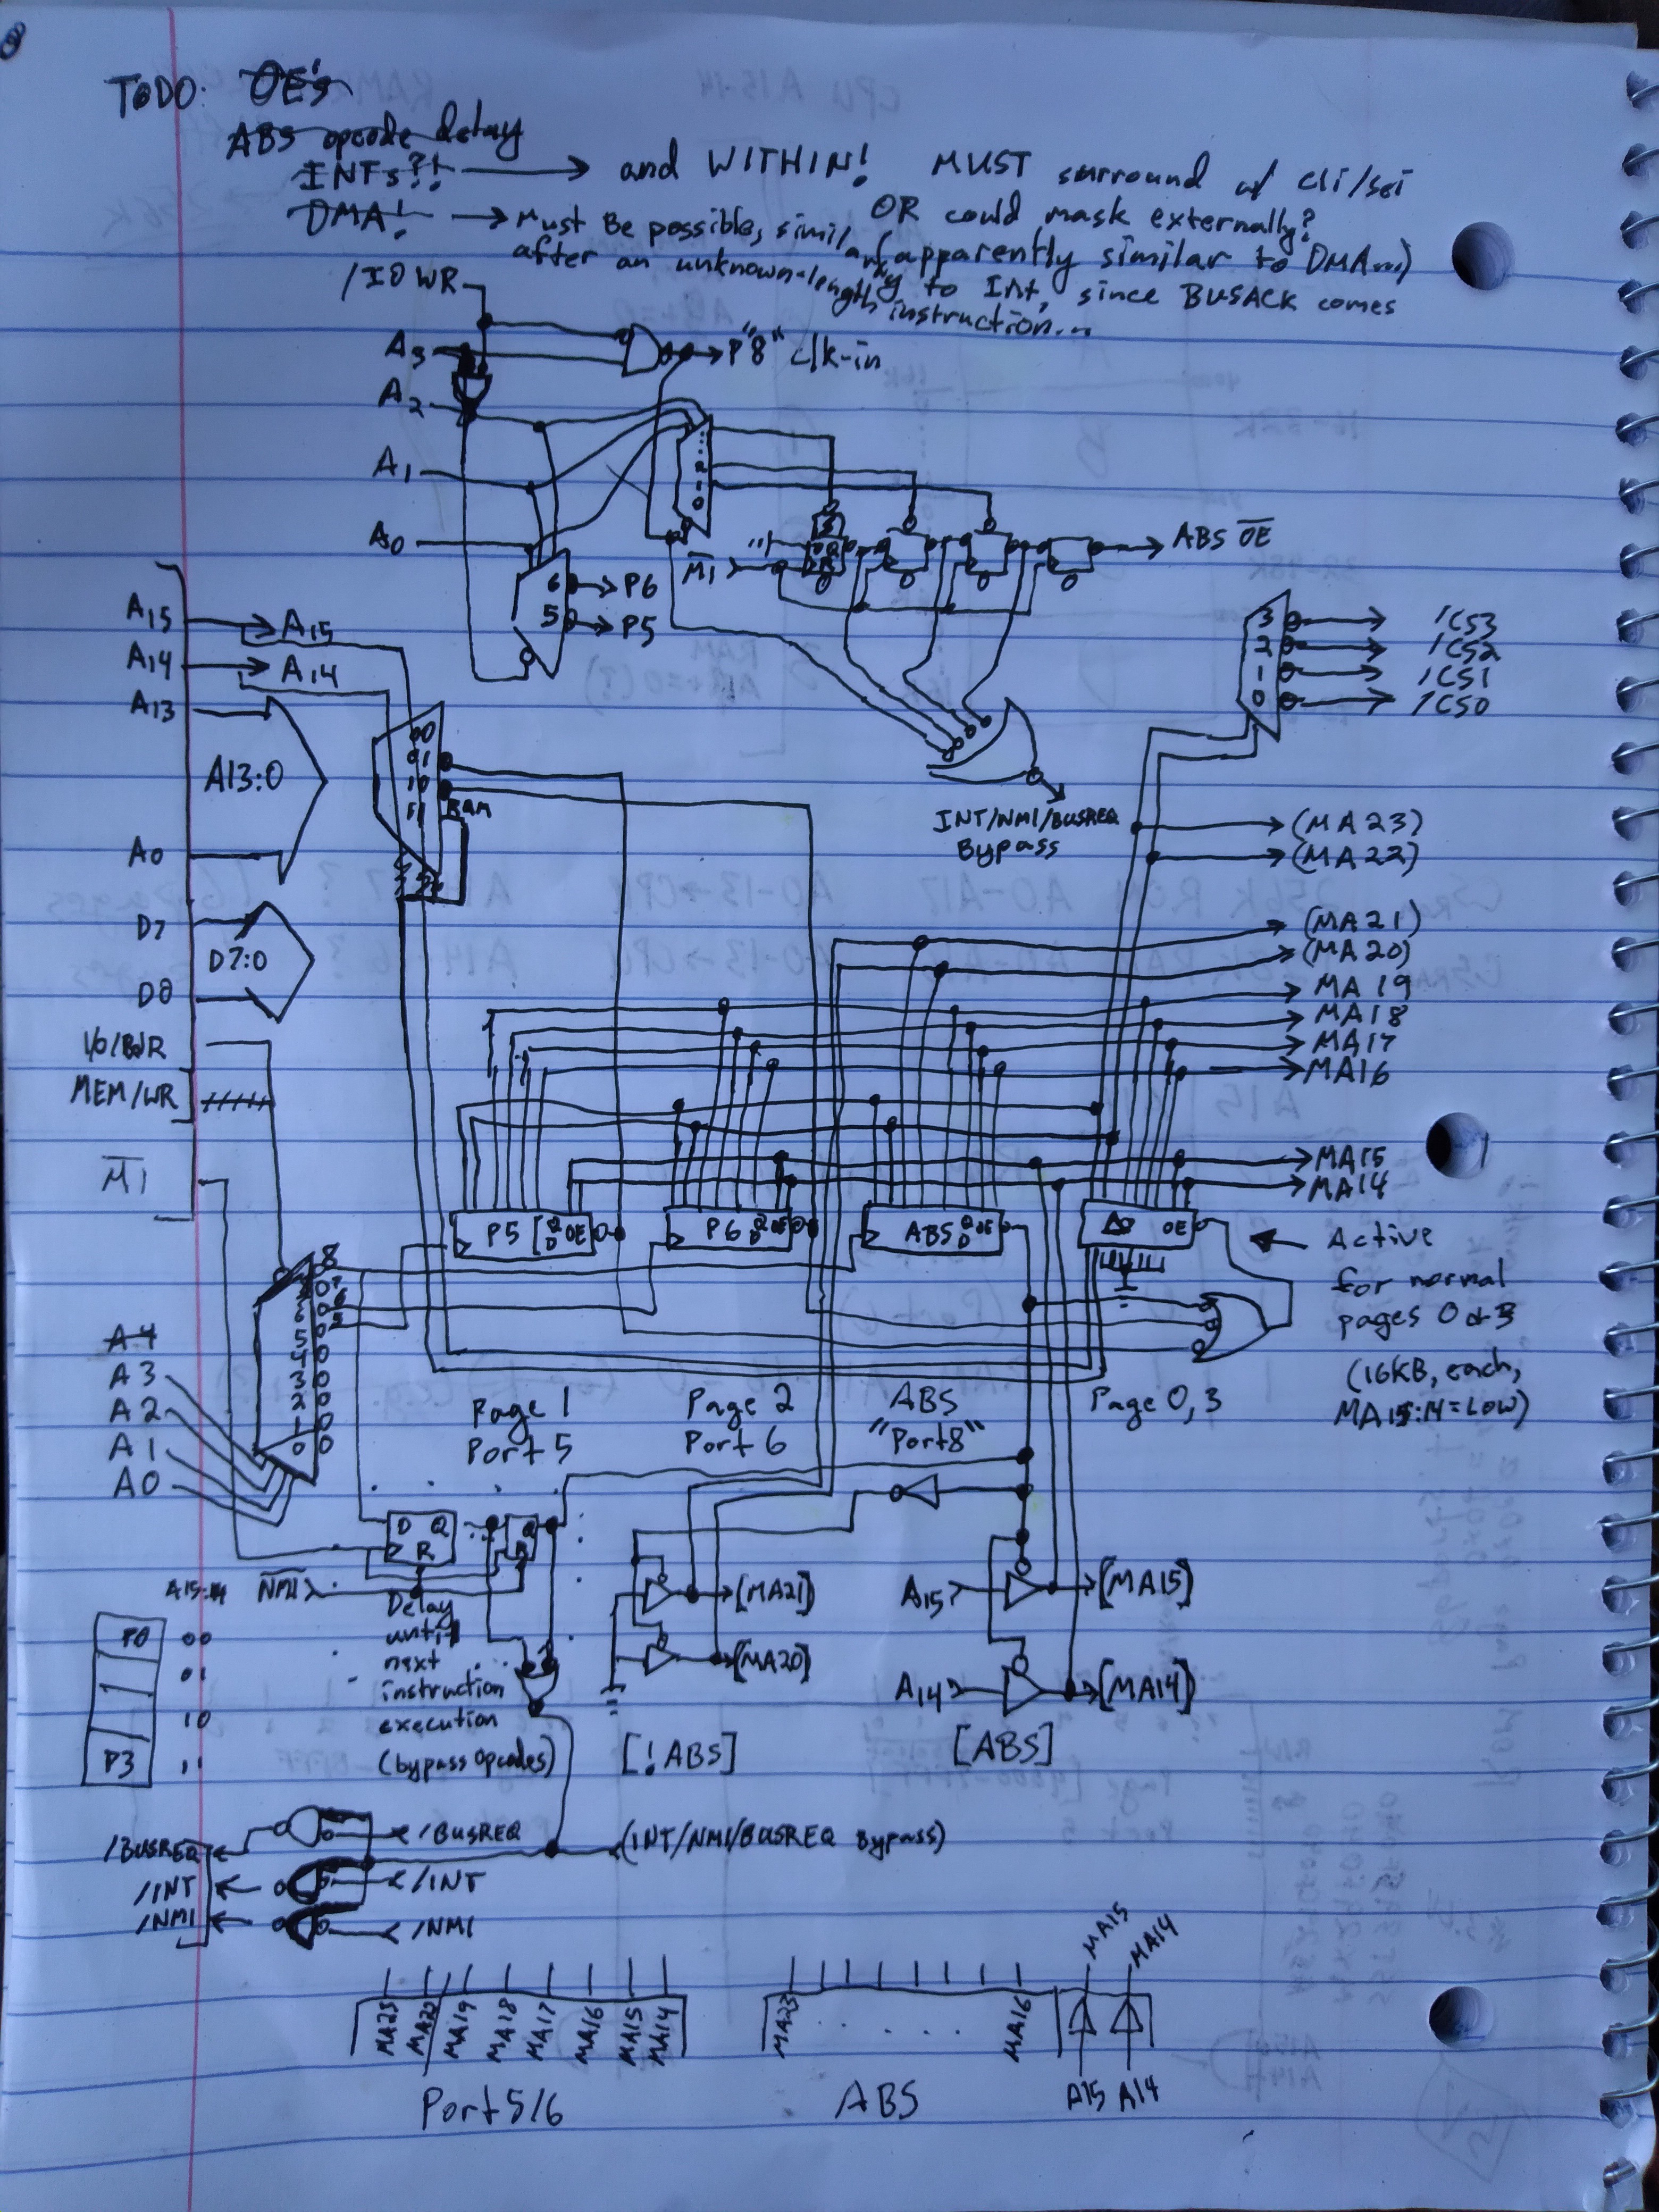 TODO: OE's
ABS opcode delay
INTs?! → and WITHIN! MUST surround w/ cli/sei
OR could mask externally?
(apparently similar to DMA...)
DMA! → Must Be possible, similarly to Int, since BUSACK comes
after an unknown-length instruction...
/IO WR
A3
P"8" clk-in
A2
A1
2
1
0
A0
"1"
M1
ABS OE
6 P6
5 P5
A15 A15
A14 A14
A13
A13:0
A0
00
01
10
11
RAM
3 /CS3
2 /CS2
1 /CS1
0 /CS0
INT/NMI/BUSREQ
Bypass
(MA23)
(MA22)
(MA21)
(MA20)
MA19
MA18
MA17
MA16
MA15
MA14
D7
D7:0
D0
I/O/WR
MEM/WR
M1
P5 Q D OE
P6 Q D OE
ABS Q D OE
OE
Active
for normal
pages 0 or 3
(16KB, each,
MA15:14=Low)
8
7
6
5
4
3
2
1
0
A4
A3
A2
A1
A0
Page 1
Port 5
Page 2
Port 6
ABS
"Port8"
Page 0,3
D Q
R
Q
R
A15:14
NMI
Delay
until
next
instruction
execution
(bypass opcodes)
[MA21]
[MA20]
[!ABS]
A15 [MA15]
A14 [MA14]
[ABS]
P0 00
01
10
P3 11
/BUSREQ /BUSREQ (INT/NMI/BUSREQ Bypass)
/INT /INT
/NMI /NMI
MA20
MA19
MA18
MA17
MA16
MA15
MA14
Port 5/6
MA23
MA16
ABS
MA15
MA14
A15 A14